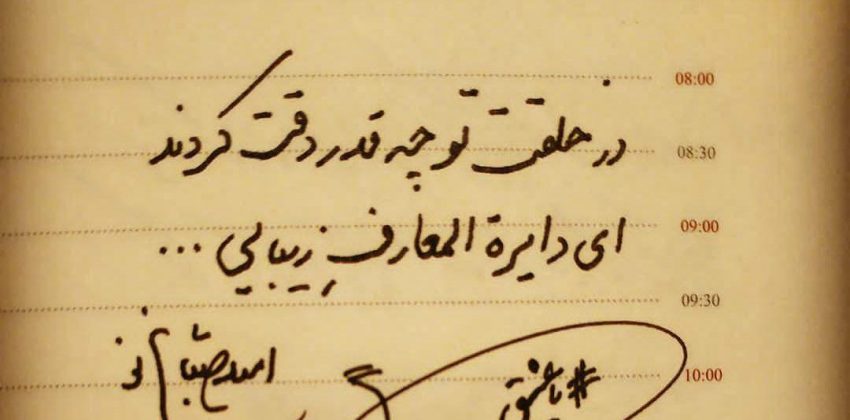 08:00
در خلقت تو چه قدر دقت کردند
08:30
ای دایرة المعارفِ زیبایی ...
09:00
09:30
امید صباغ نو
10:00